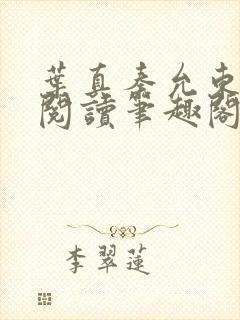 葉真秦允東
閱讀筆趣閣
李翠蓮